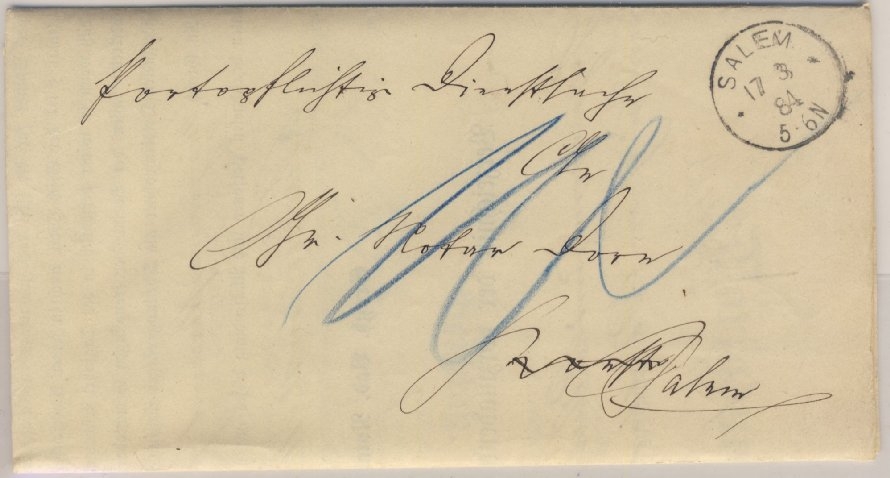 Portopflichtige Dienstsache
SALEM
17 3
84
5-6N
An
Hr. Notar Dorn
Salem